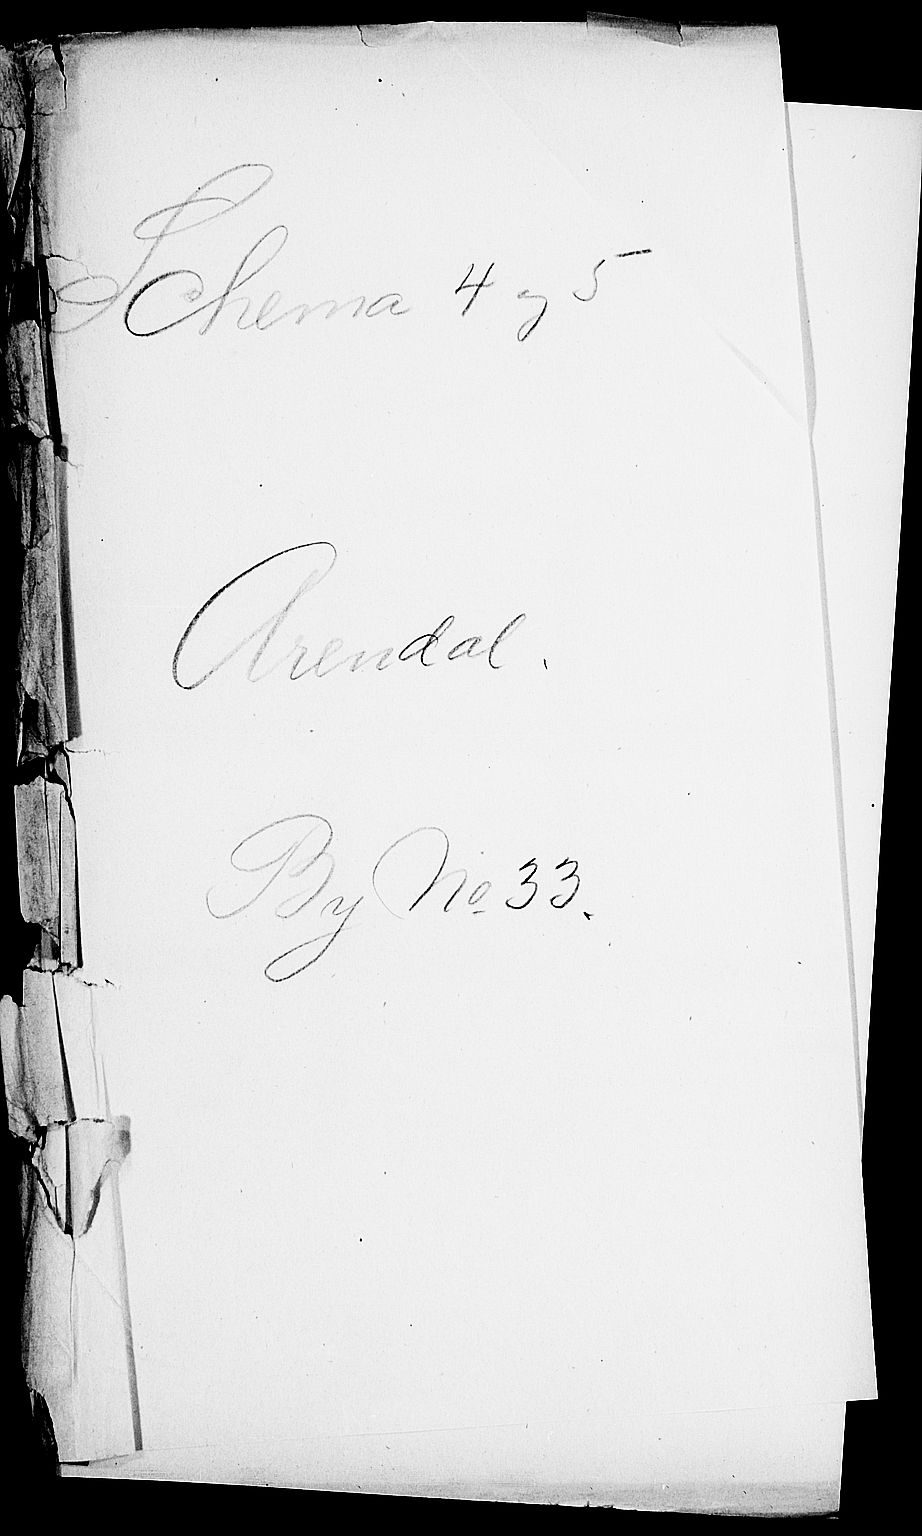 Schema 4 og 5
Arendal.
By No 33.